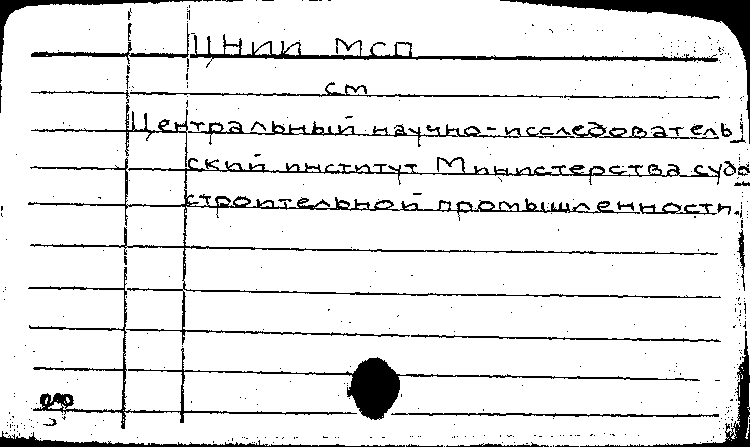 ЦНИИ МСП
см
Центральный научно-исследователь_
ский институт Министерства судо
строительной промышленности.